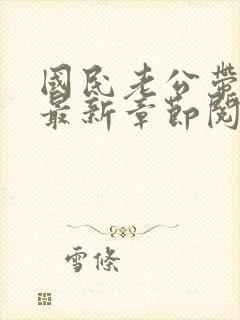 國民老公帶
最新章節閱
雪條